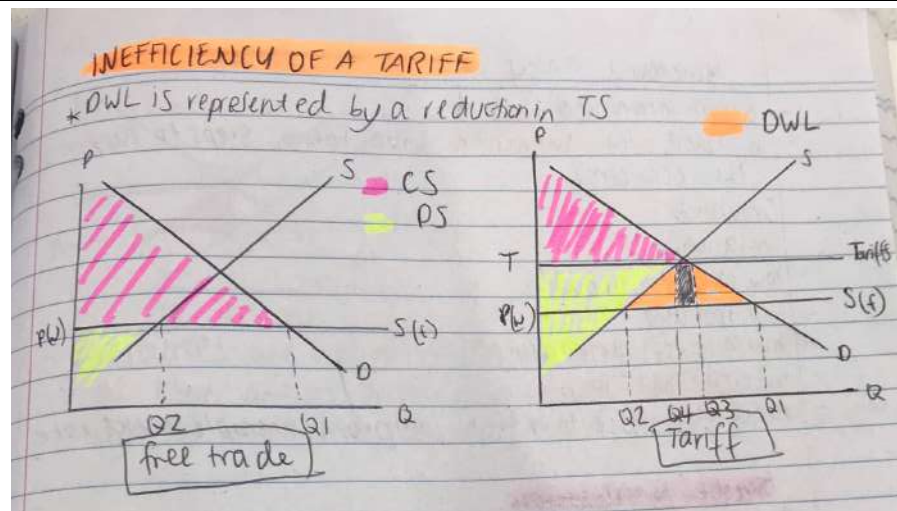 INEFFICIENCY OF A TARIFF
* DWL is represented by a reduction in TS
DWL
P
S
CS
PS
P(w)
S(f)
D
Q2
Q1
Q
free trade
P
S
T
Tariffs
P(w)
S(f)
D
Q
Q2
Q4
Q3
Q1
Tariff